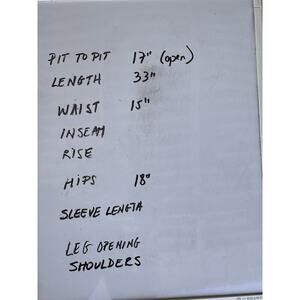 PIT TO PIT 17" (open)
LENGTH 33"
WAIST 15"
INSEAM
RISE
HIPS 18"
SLEEVE LENGTH
LEG OPENING
SHOULDERS